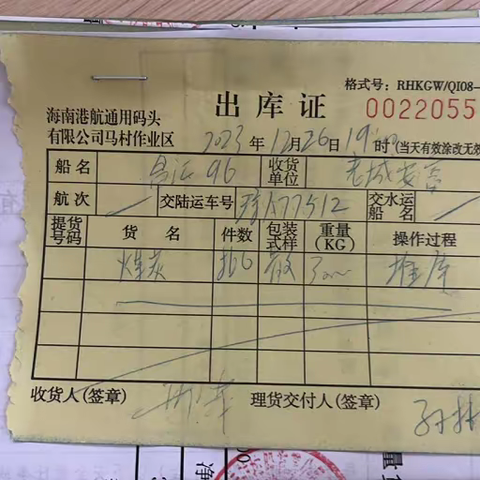 格式号：RHKGW/QI08-
海南港航通用码头
有限公司马村作业区
出库证
0022055
2023年12月26日19时 (当天有效涂改无效
船名 昌江96 收货单位 老城安言
航次 交陆运车号 A77512 交水运船名
提货号码 货名 件数 包装式样 重量(KG) 操作过程
煤炭 散 堆库
收货人(签章) 理货交付人(签章)
净